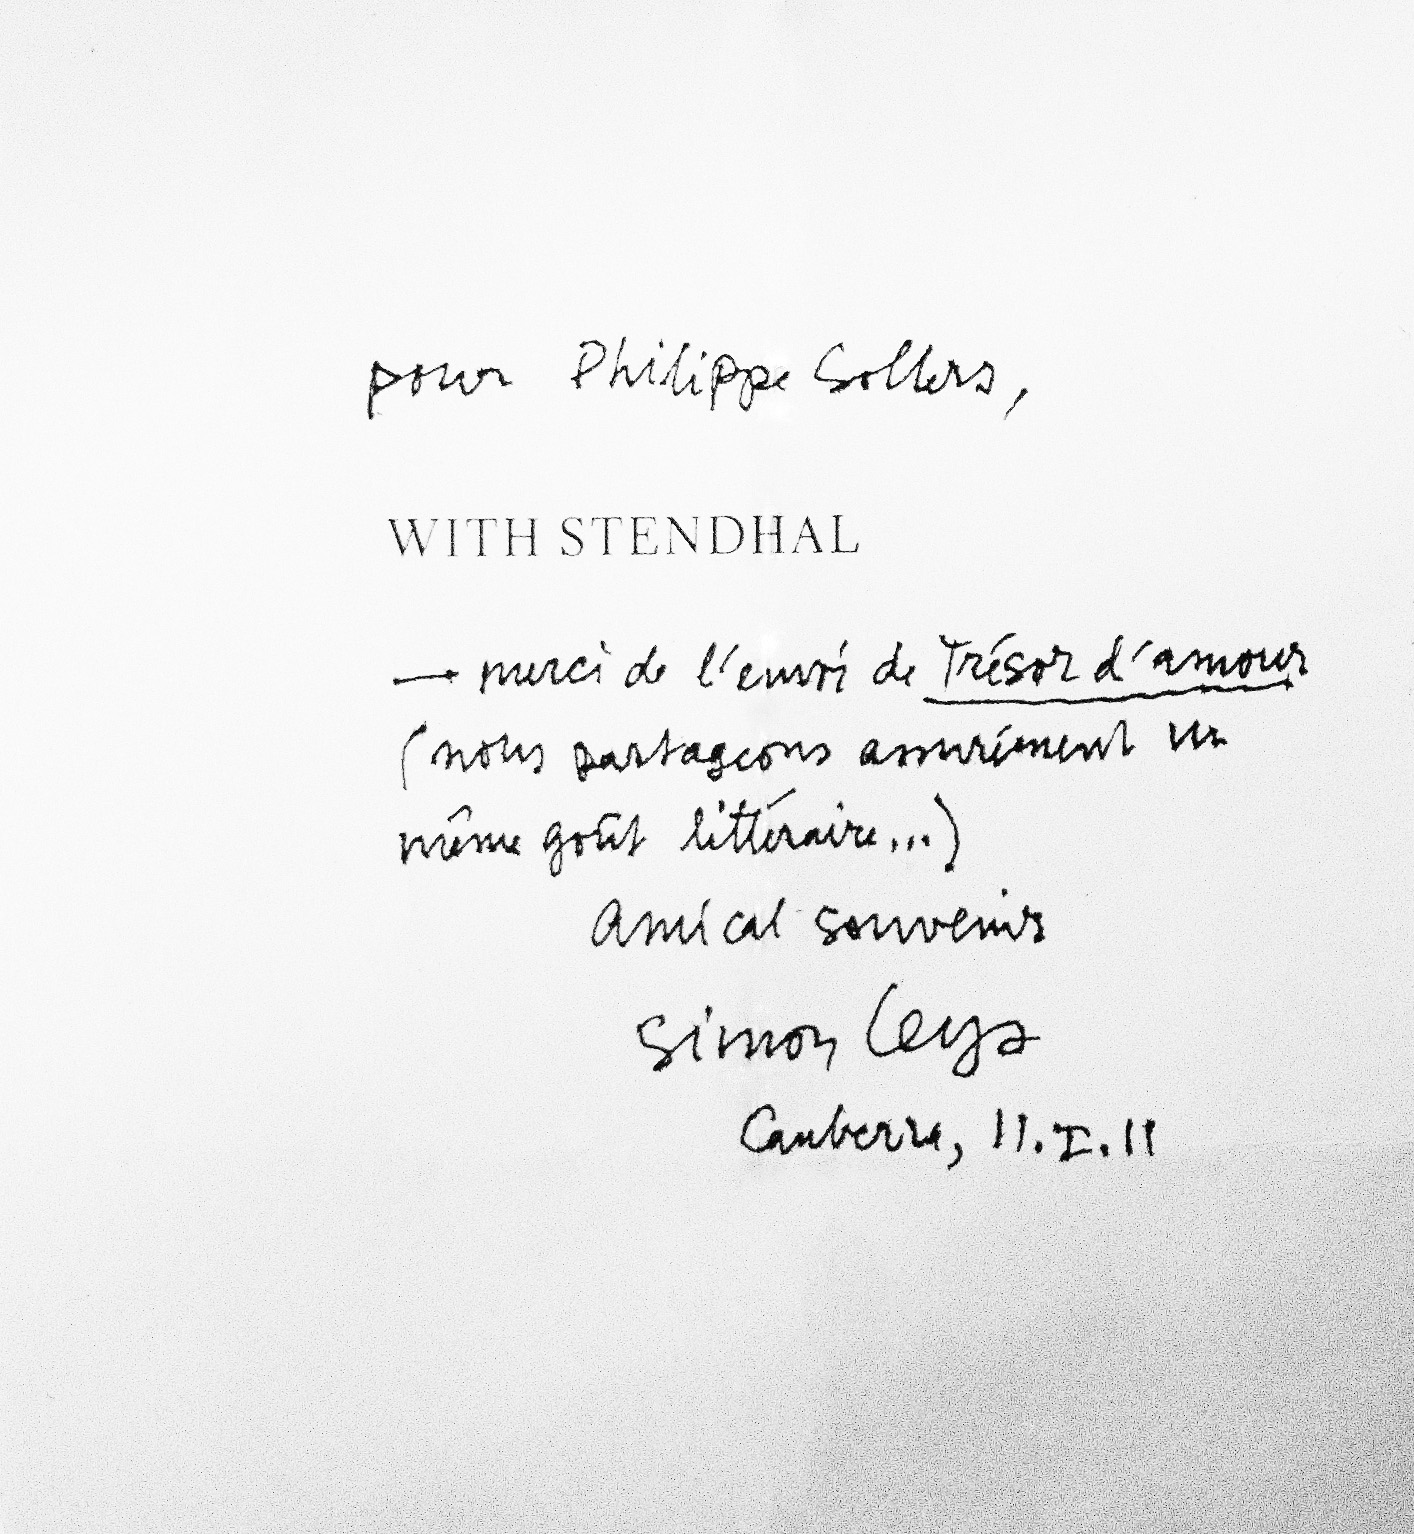 pour Philippe Sollers,
WITH STENDHAL
→ merci de l'envoi de Trésor d'amour
(nous partageons assurément un
même goût littéraire...)
Amical souvenir
Simon Leys
Canberra, 11.I.11